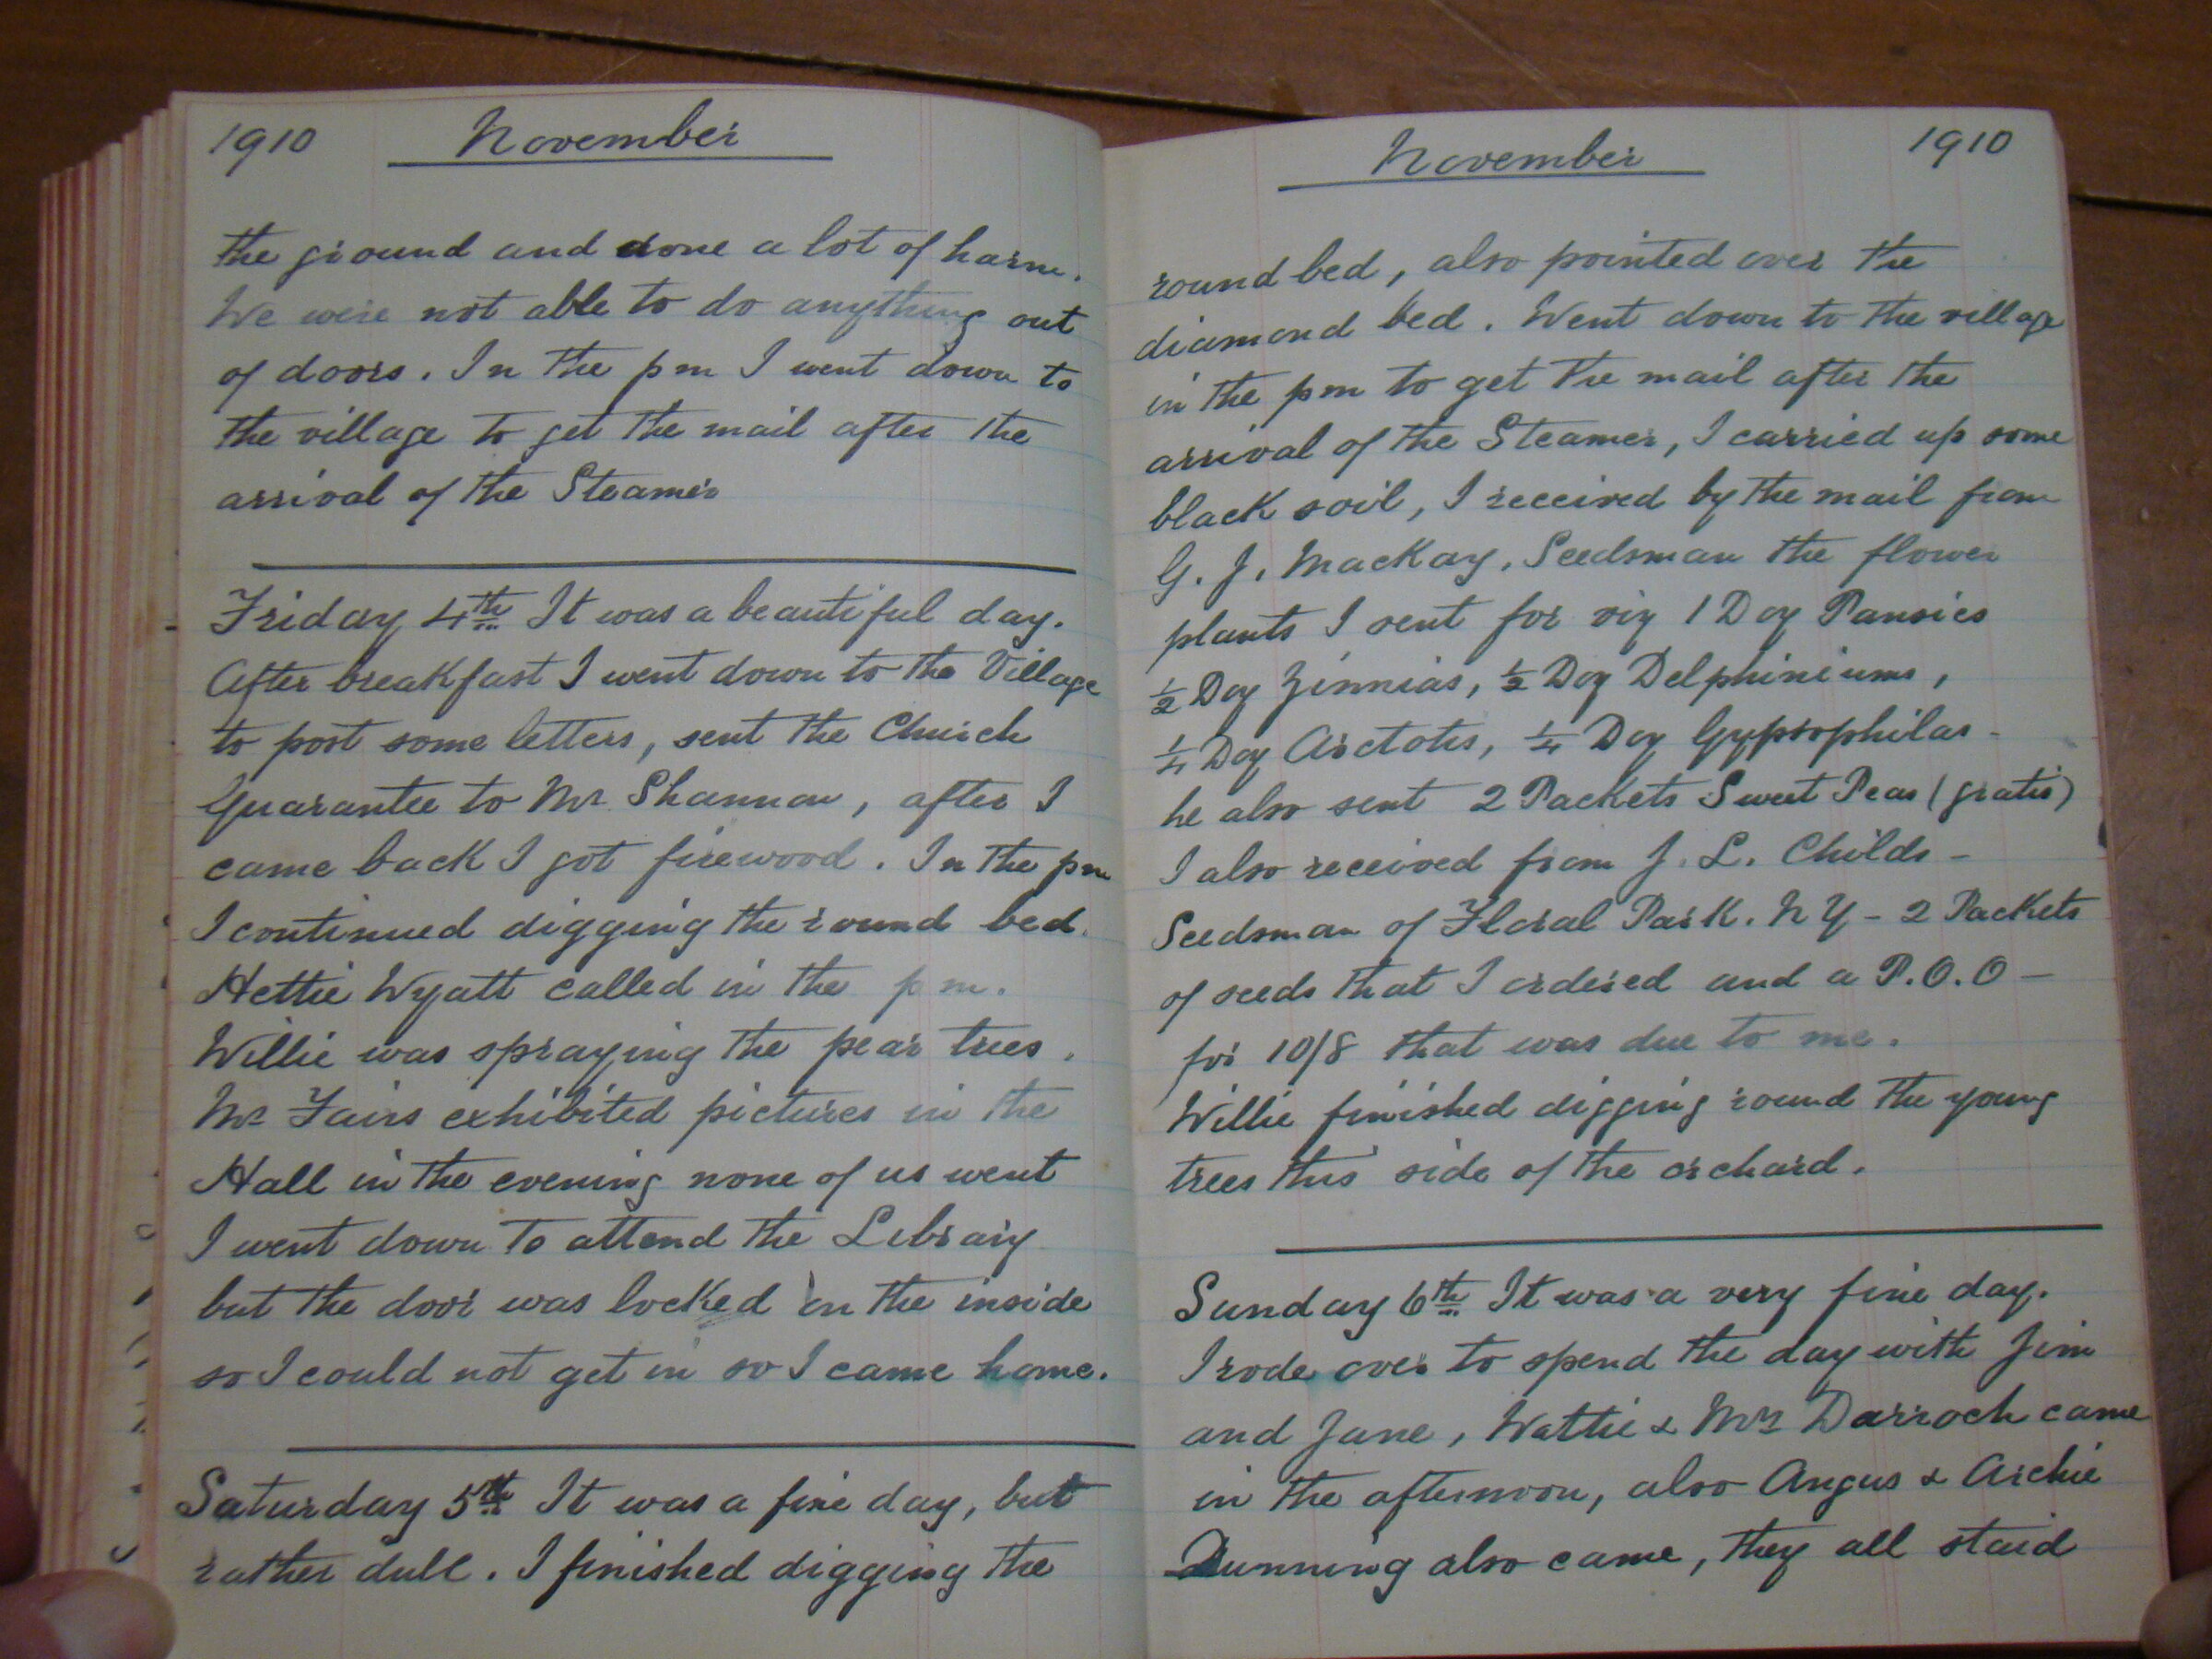 1910 November
the ground and done a lot of harm.
We were not able to do anything out
of doors. In the pm I went down to
the village to get the mail after the
arrival of the Steamer
Friday 4th It was a beautiful day.
After breakfast I went down to the Village
to post some letters, sent the Church
Guarantee to Mr Shannon, after I
came back I got firewood. In the pm
I continued digging the round bed.
Hettie Wyatt called in the pm.
Willie was spraying the pear trees.
Mr Fairs exhibited pictures in the
Hall in the evening none of us went
I went down to attend the Library
but the door was locked on the inside
so I could not get in so I came home.
Saturday 5th It was a fine day, but
rather dull. I finished digging the
November 1910
round bed, also pointed over the
diamond bed. Went down to the village
in the pm to get the mail after the
arrival of the Steamer, I carried up some
black soil, I received by the mail from
G. J. MacKay, Seedsman the flower
plants I sent for viz 1 Doz Pansies
½ Doz Zinnias, ½ Doz Delphiniums,
¼ Doz Arctotis, ¼ Doz Gypsophilas -
he also sent 2 Packets Sweet Peas (gratis)
I also received from J. L. Childs -
Seedsman of Floral Park. N Y - 2 Packets
of seeds that I ordered and a P.O.O -
for 10/8 that was due to me.
Willie finished digging round the young
trees this side of the orchard.
Sunday 6th It was a very fine day.
I rode over to spend the day with Jim
and Jane, Wattie & Mrs Darroch came
in the afternoon, also Angus & Archie
Dunning also came, they all staid